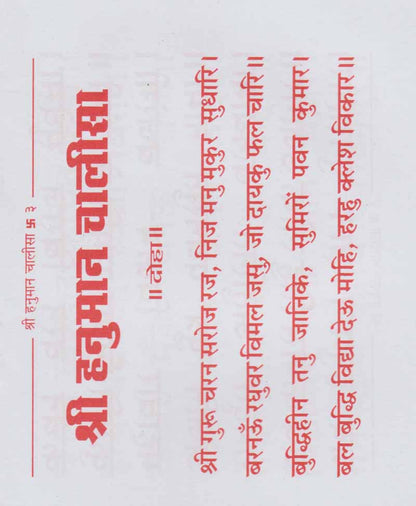 श्री हनुमान चालीसा 卐 ३
श्री हनुमान चालीसा
॥दोहा॥
श्री गुरु चरन सरोज रज, निज मनु मुकुर सुधारि।
बरनऊँ रघुवर विमल जसु, जो दायकु फल चारि॥
बुद्धिहीन तनु जानिके, सुमिरों पवन कुमार।
बल बुद्धि विद्या देऊ मोहि, हरहु क्लेश विकार॥